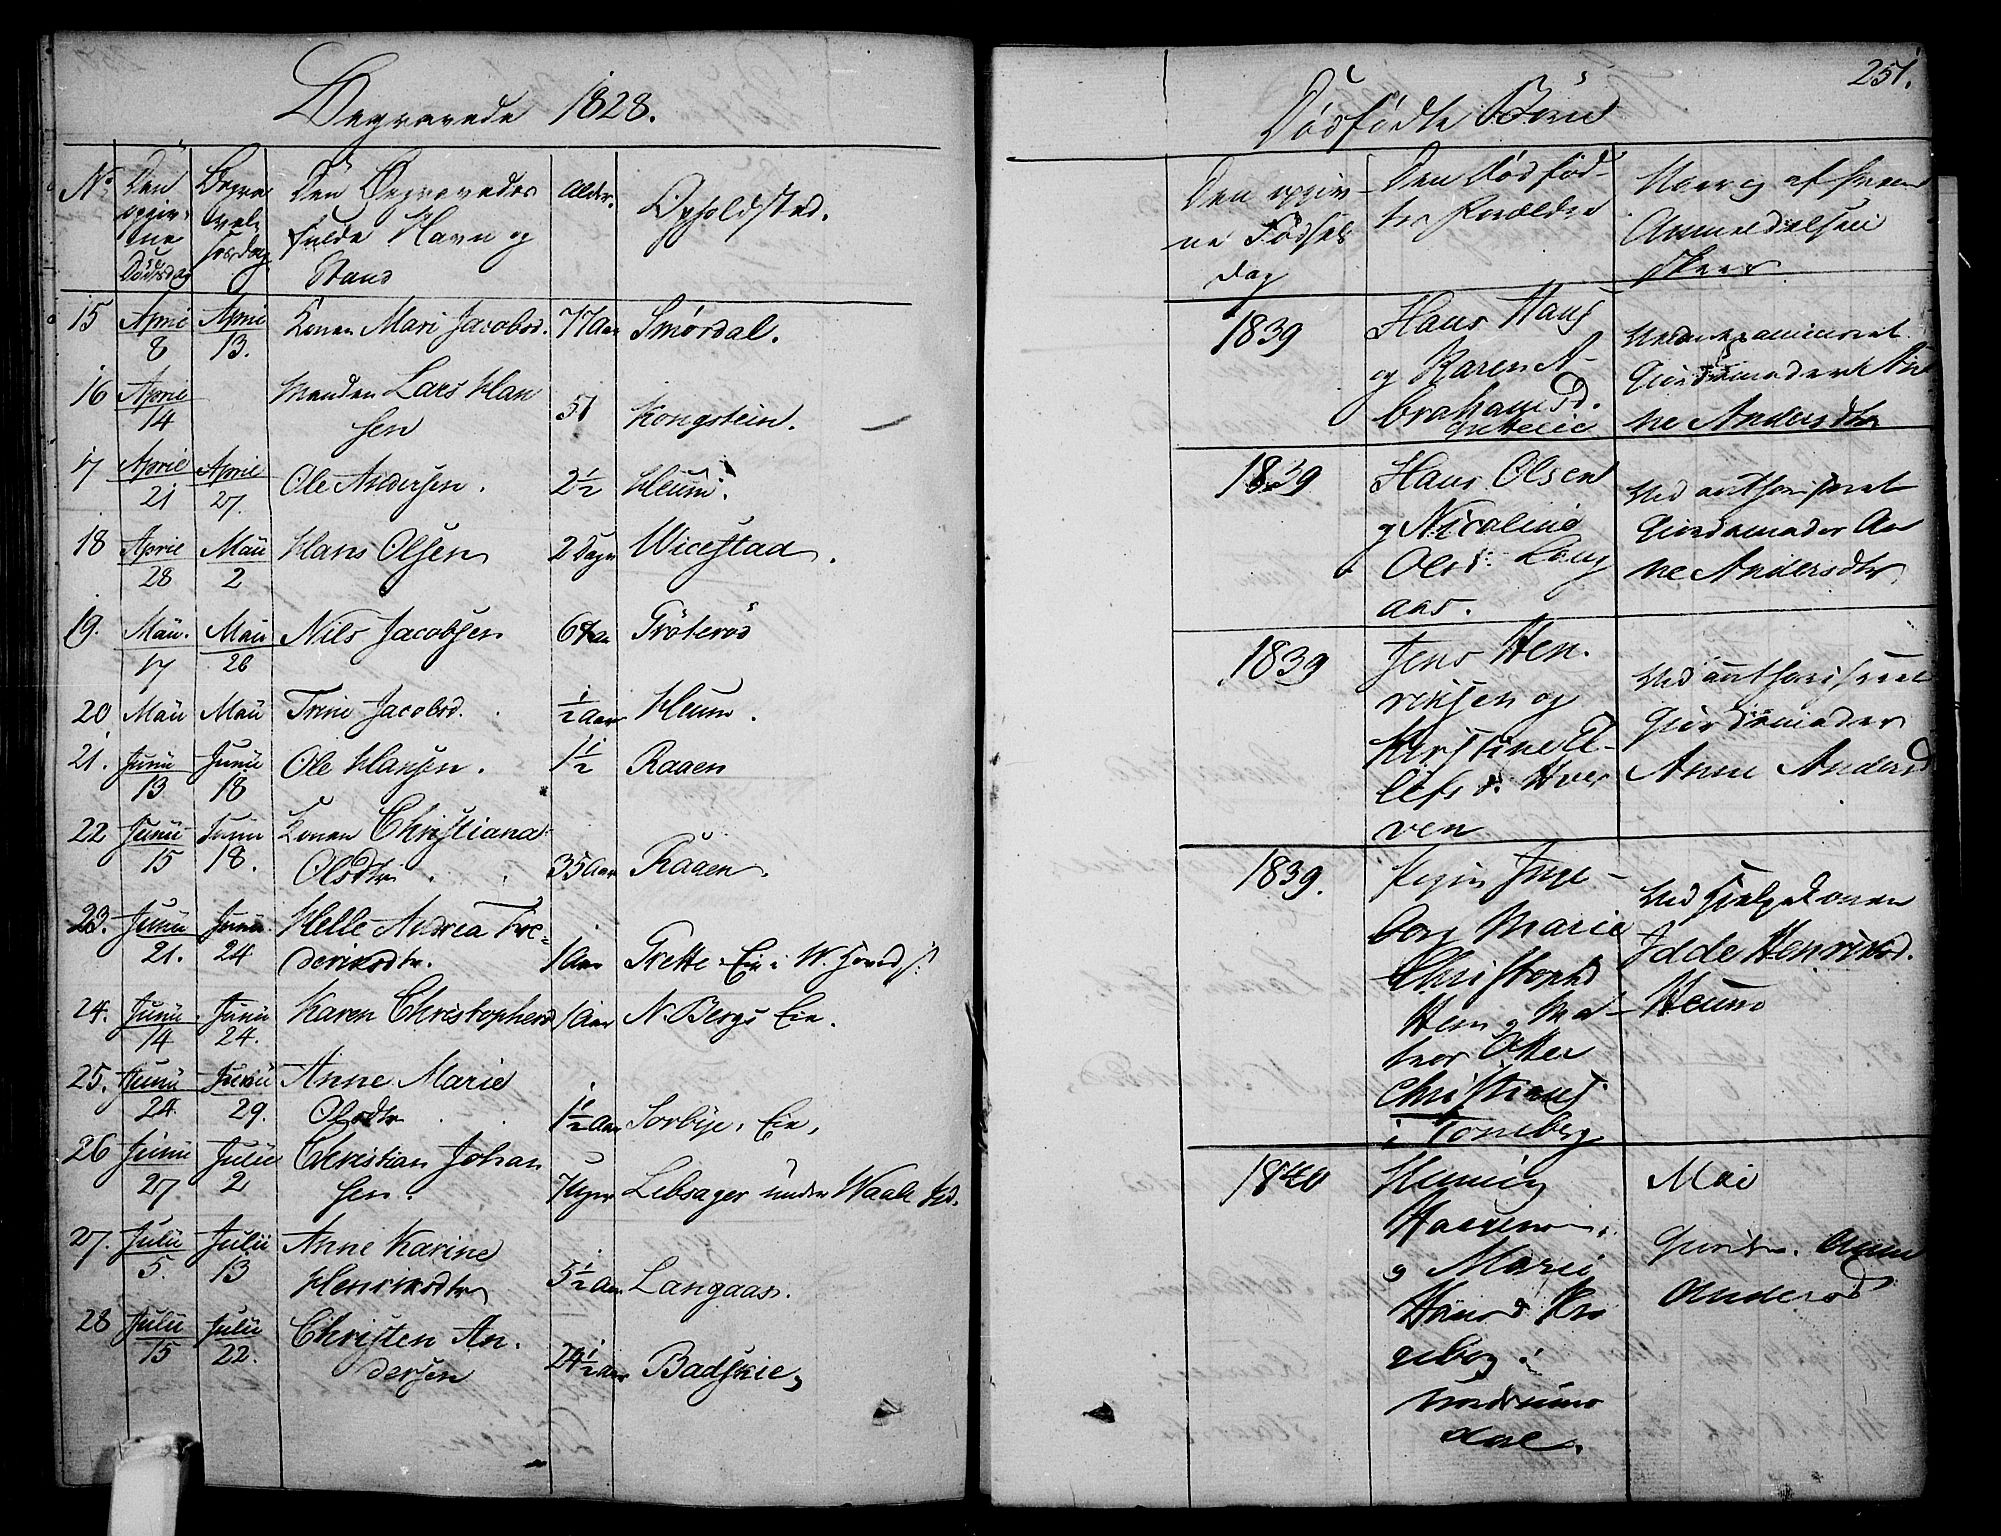 Begravede 1828.
No
Den opgivne Dødsdag
Begravelsesdag
Den Begravedes fulde Navn og Stand
Alder.
Opholdsted.
15 April 8 April 13. Konen Mari Jacobsd. 77 Aar Smørdal.
16 April 14 Manden Lars Hansen 51 Kongstein.
17 April 21 April 27. Ole Andersen. 2½ Heum.
18 April 28 Maii 2 Hans Olsen 2 Dage Wicestad.
19. Maii. 17 Maii 26 Nils Jacobsen 64 Aar Trøterød
20 Maii Maii Trine Jacobsd. ½ Aar Heum.
21. Junii 13 Junii 18 Ole Hansen. 1½ Raaen
22 Junii 15 Junii 18. Konen Christiana Olsdtr. 35 Aar Raaen.
23. Junii 21. Junii 24 Helle Andrea Frederiksdtr. 1 Aar Trette Eie i W.
24. Junii 14 Junii 24. Karen Christophersd 1 Aar N. Bergs Eie.
25. Junii 24 Junii 29. Anne Marie Olsdtr 1½ Aar Sorbye, Eie,
26 Junii 27 Julii 2 Christian Johansen. 7 Uger Lebsager under Waale
27. Julii 5. Julii 13 Anne Karine Henriksdtr 5½ Aar Langaas.
28 Julii 15 Julii 22. Christen Andersen 24½ Aar Badskie,
251.
Dødfødte Børn
Den opgivne Fødselsdag
Den Dødfødtes Forældre
Anmeldelsen skeer
1839
Hans Hans
og Karen A-
brahamsd.
Giordemoder An
ne Andersdtr
1839
Hans Olsen
og Nicoline
Olsd. Lang
aas.
Ved authoriseret
Giordemoder An
ne Andersdtr
1839
Jens Hen.
riksen og
Kirstine E-
lefsd. Hver
ven
Ved authoriseret
Giordemoder
Anne Andersd
1839.
Pigen Inge-
borg Marie
Christophd
Hem og Ma-
tros Otter
Christians
i Tønsberg
Ved Hielpekonen
Idde Henriksd.
Heum
1840
Henrig
og Marie
i
Moi
Anne
Andersd